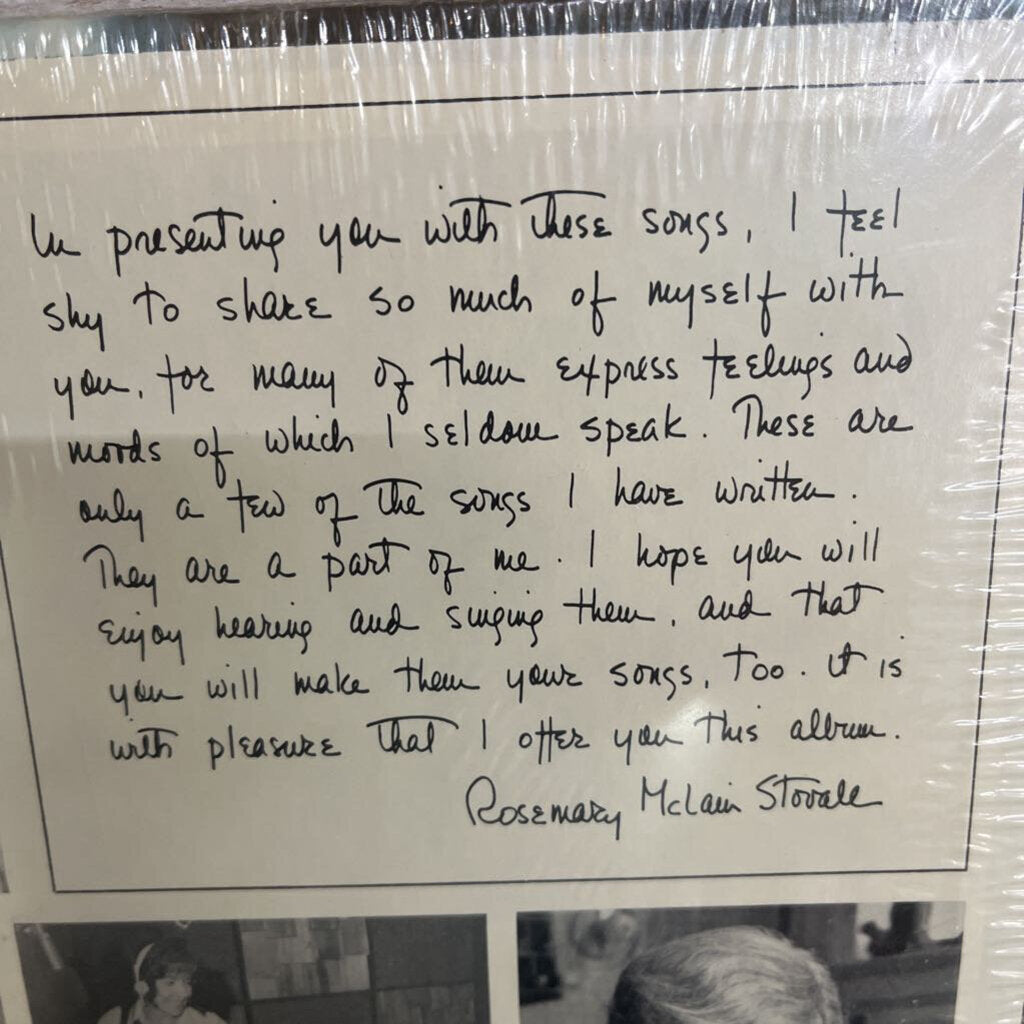 In presenting you with these songs, I feel
shy to share so much of myself with
you, for many of them express feelings and
moods of which I seldom speak. These are
only a few of the songs I have written.
They are a part of me. I hope you will
enjoy hearing and singing them, and that
you will make them your songs, too. It is
with pleasure that I offer you this album.
Rosemary McLain Stovall